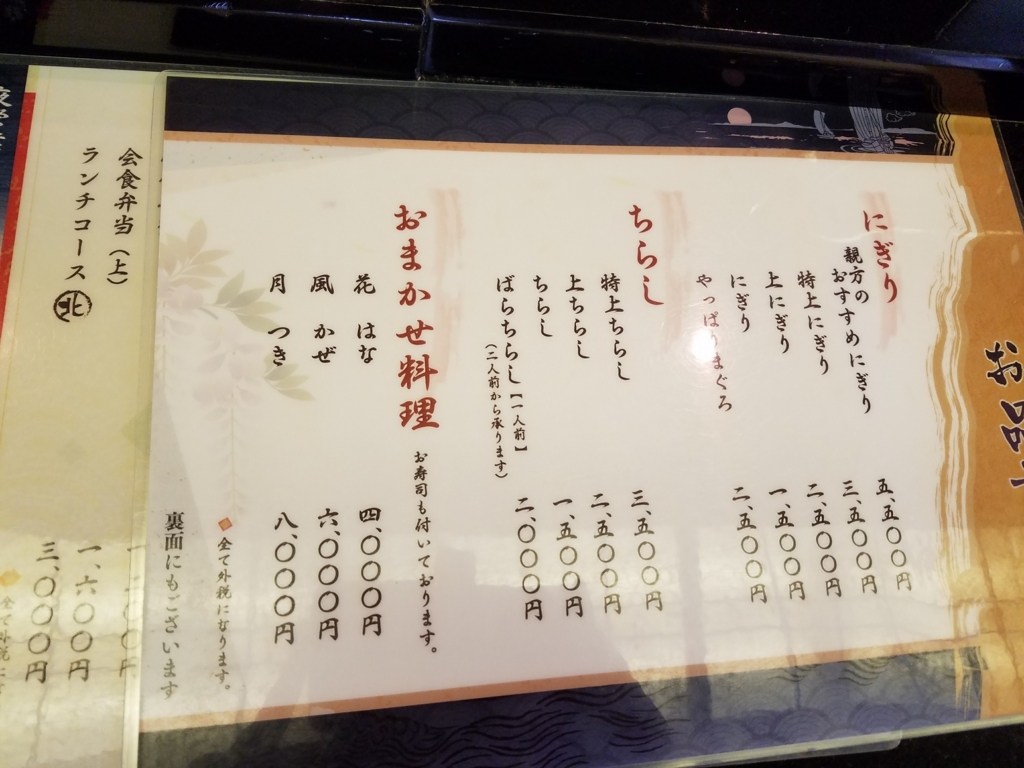 お品
にぎり
親方の
おすすめにぎり 五、五〇〇円
特上にぎり 三、五〇〇円
上にぎり 二、五〇〇円
にぎり 一、五〇〇円
やっぱりまぐろ 二、五〇〇円
ちらし
特上ちらし 三、五〇〇円
上ちらし 二、五〇〇円
ちらし 一、五〇〇円
ばらちらし【一人前】 二、〇〇〇円
(二人前から承ります)
おまかせ料理 お寿司も付いております。
花 はな 四、〇〇〇円
風 かぜ 六、〇〇〇円
月 つき 八、〇〇〇円
全て外税になります。
裏面にもございます
会食弁当(上) 一、六〇〇円
ランチコース 北 三、〇〇〇円
全て外税に